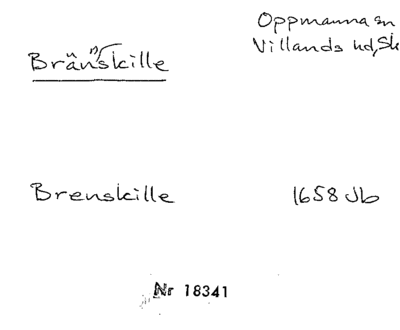 Oppmanna sn
Villands hd, Sk
Brännskille
Brenskille 1658 Jb
Nr 18341